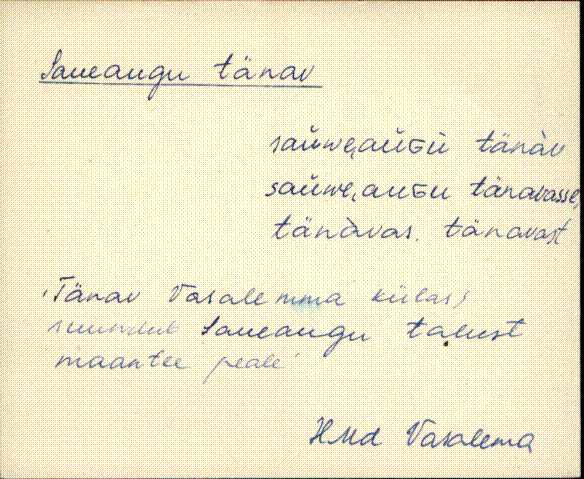 Saueaugu tänav
saŭwe,aŭGŭ tänàv
saŭwe,auGu tänavasse,
tänàvas. tänavast
Tänav Vasalemma külas;
suundub Saueaugu talust
maantee peale
HMd Vasalema